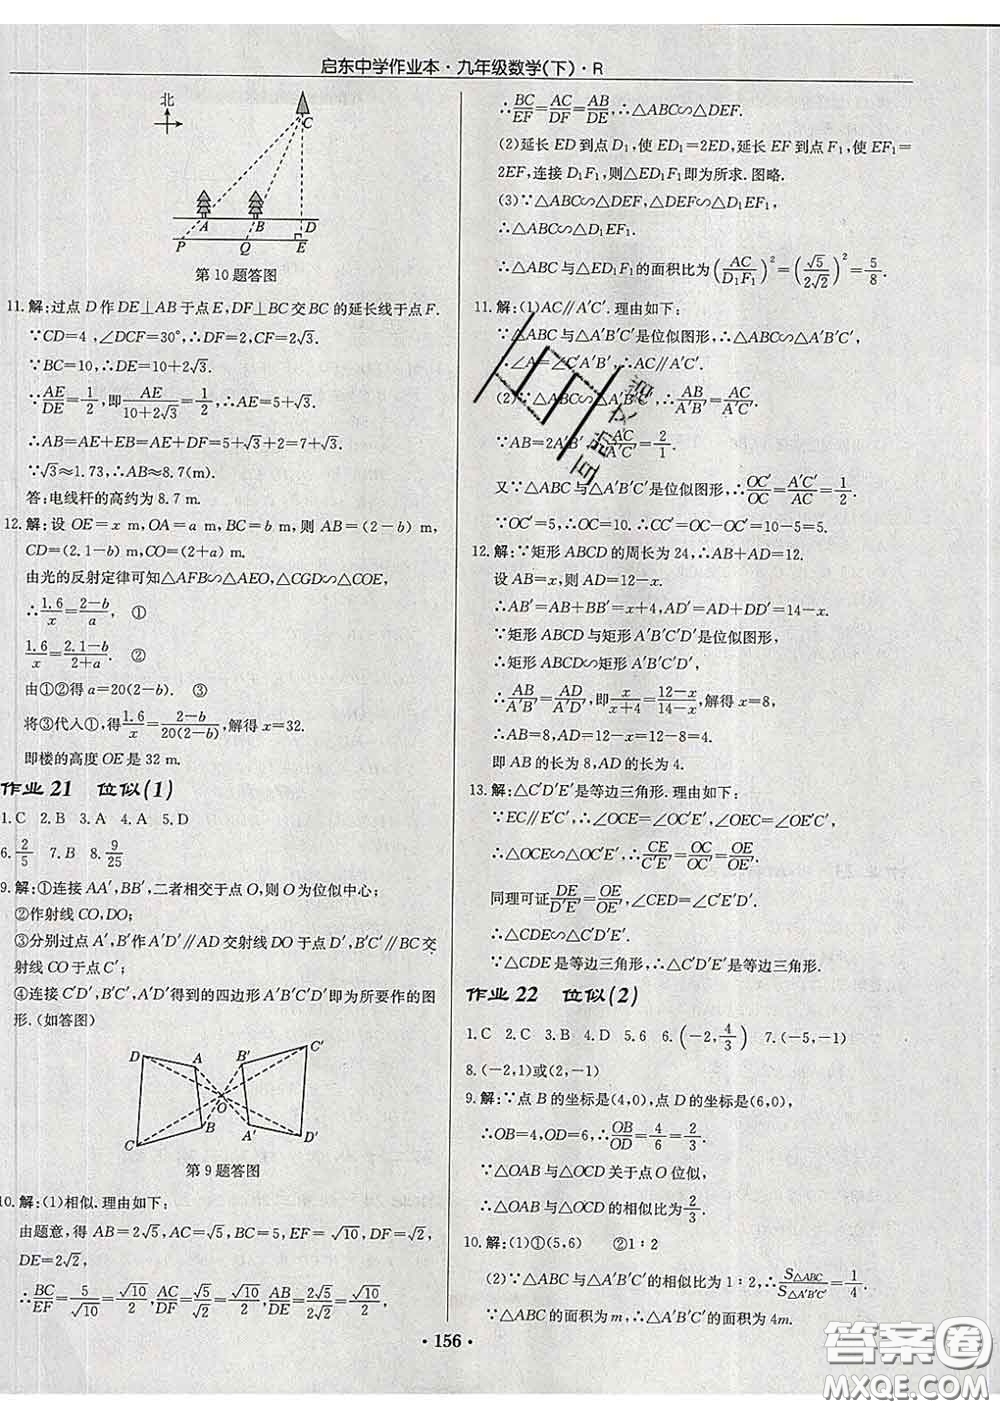 启东中学作业本·九年级数学(下)·R
北
C
A B D
P Q E
第10题答图
11.解:过点D作DE⊥AB于点E,DF⊥BC交BC的延长线于点F.
∵CD=4,∠DCF=30°,∴DF=2,CF=2√3.
∵BC=10,∴DE=10+2√3.
∵AE/DE=1/2,即AE/(10+2√3)=1/2,∴AE=5+√3.
∴AB=AE+EB=AE+DF=5+√3+2=7+√3.
∵√3≈1.73,∴AB≈8.7(m).
答:电线杆的高约为8.7 m.
12.解:设OE=x m,OA=a m,BC=b m,则AB=(2-b) m,
CD=(2.1-b)m,CO=(2+a) m.
由光的反射定律可知△AFB∽△AEO,△CGD∽△COE,
∴1.6/x=(2-b)/a, ①
1.6/x=(2.1-b)/(2+a). ②
由①②得a=20(2-b). ③
将③代入①,得1.6/x=(2-b)/(20(2-b)),解得x=32.
即楼的高度OE是32 m.
作业21 位似(1)
1.C 2.B 3.A 4.A 5.D
6.2/5 7.B 8.9/25
9.解:①连接AA′,BB′,二者相交于点O,则O为位似中心;
②作射线CO,DO;
③分别过点A′,B′作A′D′∥AD交射线DO于点D′,B′C′∥BC交
射线CO于点C′;
④连接C′D′,B′C′,A′D′得到的四边形A′B′C′D′即为所要作的图
形.(如答图)
D A B′ C′
O
C B A′ D′
第9题答图
10.解:(1)相似.理由如下:
由题意,得AB=2√5,AC=√5,BC=5,EF=√10,DF=√2,
DE=2√2,
∴BC/EF=5/√10=√10/2,AC/DF=√5/√2=√10/2,AB/DE=2√5/2√2=√10/2,
∴BC/EF=AC/DF=AB/DE,∴△ABC∽△DEF.
(2)延长ED到点D₁,使ED₁=2ED,延长EF到点F₁,使EF₁=
2EF,连接D₁F₁,则△ED₁F₁即为所求.图略.
(3)∵△ABC∽△DEF,△DEF∽△D₁EF₁,
∴△ABC∽△D₁EF₁.
∴△ABC与△ED₁F₁的面积比为(AC/D₁F₁)²=(√5/2√2)²=5/8.
11.解:(1)AC∥A′C′.理由如下:
∵△ABC与△A′B′C′是位似图形,∴△ABC∽△A′B′C′.
∴∠A=∠C′A′B′,∴AC∥A′C′.
(2)∵△ABC∽△A′B′C′,∴AB/A′B′=AC/A′C′.
∵AB=2A′B′,∴AC/A′C′=2/1.
又∵△ABC与△A′B′C′是位似图形,∴OC′/OC=A′C′/AC=1/2.
∵OC′=5,∴OC=10.∴CC′=OC-OC′=10-5=5.
12.解:∵矩形ABCD的周长为24,∴AB+AD=12.
设AB=x,则AD=12-x.
∴AB′=AB+BB′=x+4,AD′=AD+DD′=14-x.
∵矩形ABCD与矩形A′B′C′D′是位似图形,
∴矩形ABCD∽矩形A′B′C′D′,
∴AB/A′B′=AD/A′D′,即x/(x+4)=(12-x)/(14-x),解得x=8,
∴AB=8,AD=12-x=12-8=4.
即AB的长为8,AD的长为4.
13.解:△C′D′E′是等边三角形.理由如下:
∵EC∥E′C′,∴∠OCE=∠OC′E′,∠OEC=∠OE′C′,
∴△OCE∽△OC′E′.∴CE/C′E′=OC/OC′=OE/OE′.
同理可证DE/D′E′=OE/OE′,∠CED=∠C′E′D′.
∴△CDE∽△C′D′E′.
∵△CDE是等边三角形,∴△C′D′E′是等边三角形.
作业22 位似(2)
1.C 2.C 3.B 4.D 5.6 6.(-2,4/3) 7.(-5,-1)
8.(-2,1)或(2,-1)
9.解:∵点B的坐标是(4,0),点D的坐标是(6,0),
∴OB=4,OD=6,∴OB/OD=4/6=2/3.
∵△OAB与△OCD关于点O位似,
∴△OAB与△OCD的相似比为2/3.
10.解:(1)①(5,6) ②1∶2
(2)∵△ABC与△A′B′C′的相似比为1∶2,∴S△ABC/S△A′B′C′=1/4.
∵△ABC的面积为m,∴△A′B′C′的面积为4m.
·156·
答案圈
MXQE.COM